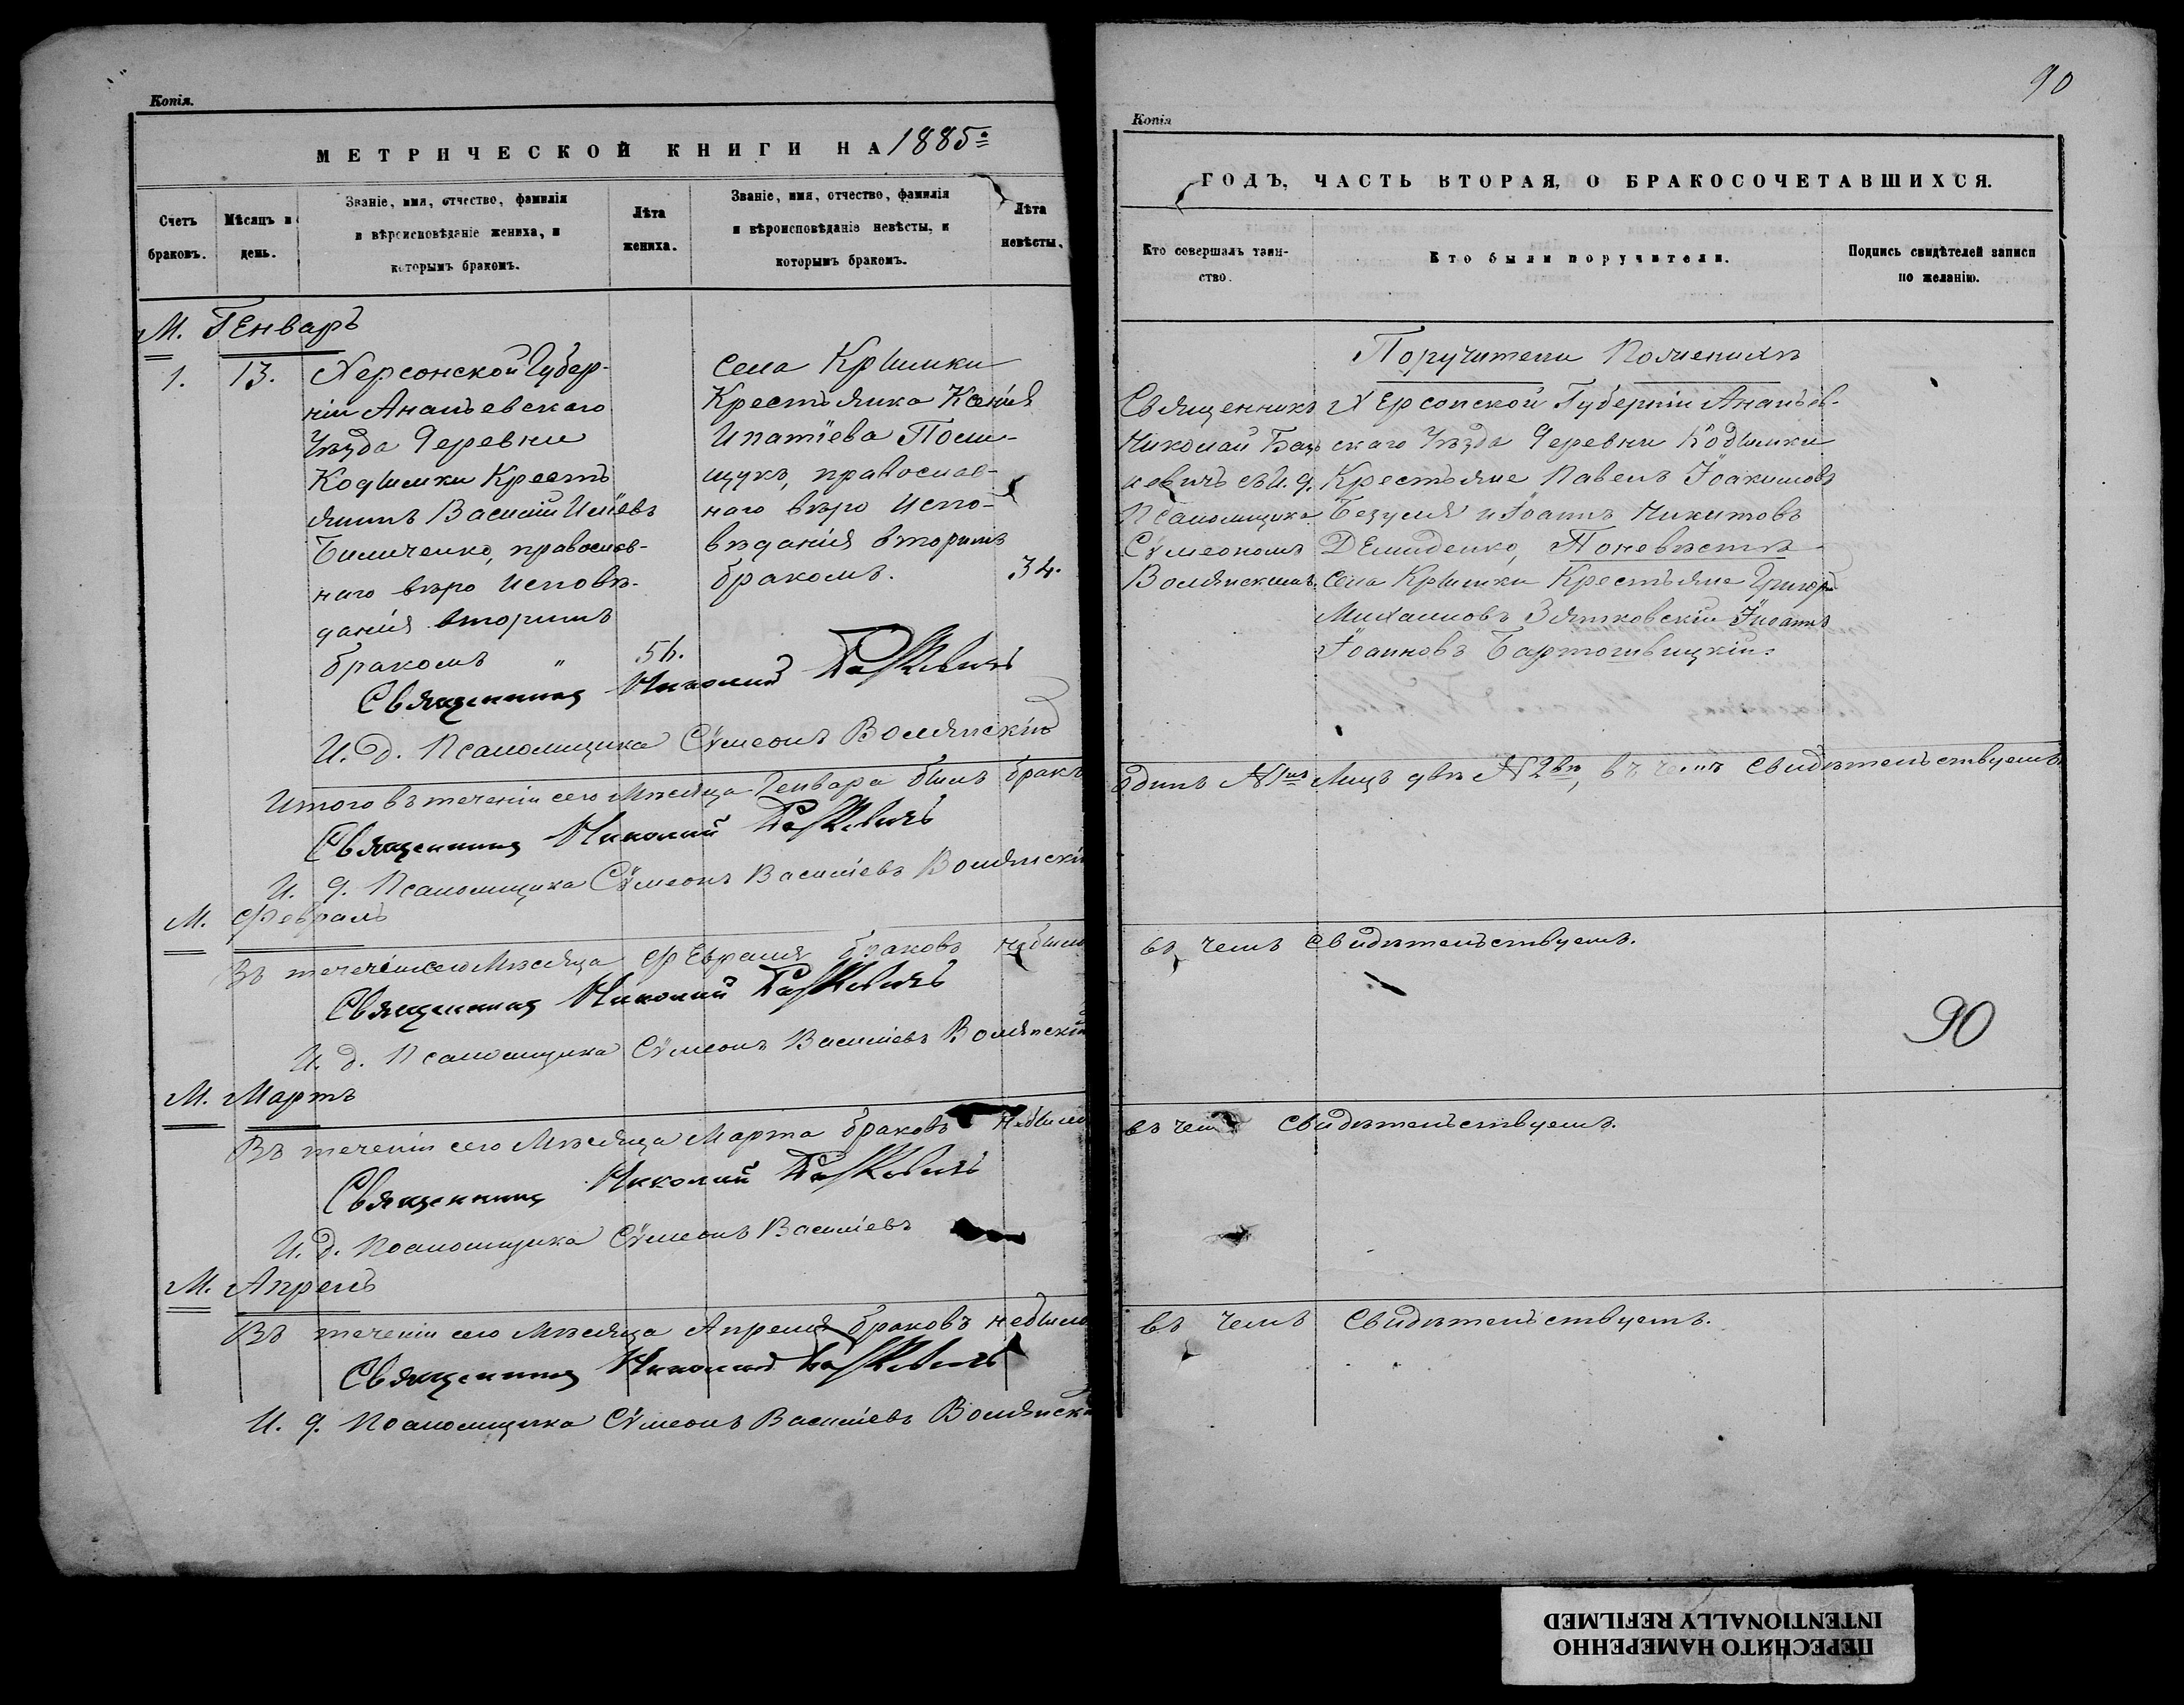 Копія.
МЕТРИЧЕСКОЙ КНИГИ НА 1885
Счетъ браковъ.
Мѣсяцъ и день.
Званіе, имя, отчество, фамилія и вѣроисповѣданіе жениха, и которымъ бракомъ.
Лѣта жениха.
Званіе, имя, отчество, фамилія и вѣроисповѣданіе невѣсты, и которымъ бракомъ.
Лѣта невѣсты.
М. Генварь
1. 13.
Херсонской Губер-
ніи Ананьевскаго
Уѣзда Деревни
Кодымки Кресть
янинъ Василій
Биличенко, православ-
наго вѣро исповѣ-
данія вторымъ
бракомъ " 56.
Села Крымки
Крестьянка Ксенія
Ипатіева Поли-
щукъ, православ-
наго вѣро испо-
вѣданія вторымъ
бракомъ. 34.
Священникъ Николай
И. д. Псаломщика Сѵмеонъ Волянскій
Итого въ теченіи сего Мѣсяца Генваря былъ бракъ
Священникъ Николай
И. д. Псаломщика Сѵмеонъ Василіевъ Волянскій
М. Февраль
Въ теченіи сего Мѣсяца Февраля браковъ небыло
Священникъ Николай
И. д. Псаломщика Сѵмеонъ Василіевъ Волянскій
М. Мартъ
Въ теченіи сего Мѣсяца Марта браковъ небыло
Священникъ Николай
И. д. Псаломщика Сѵмеонъ Василіевъ
М. Апрель
Въ теченіи сего Мѣсяца Апреля браковъ небыло
Священникъ Николай
И. д. Псаломщика Сѵмеонъ Василіевъ Волянск
90
Копія
ГОДЪ, ЧАСТЬ ВТОРАЯ, О БРАКОСОЧЕТАВШИХСЯ.
Кто совершалъ таин-
ство.
Кто были поручители.
Подпись свидѣтелей записи
по желанію.
Священникъ
Николай
съ И. д.
Псаломщика
Сѵмеономъ
Волянскимъ.
Поручители По женихѣ
Херсонской Губерніи Ананьев-
скаго Уѣзда Деревни Кодымки
Крестьяне Павелъ Іоакимовъ
Безуля и Іоаннъ Никитовъ
Демиденко, По невѣстѣ
Села Крымки Крестьяне Григорій
Михаиловъ Зятковскій Іоаннъ
Іоанновъ
одинъ №1нъ Лицъ двѣ №2вѣ, въ чемъ свидѣтельствуемъ.
въ чемъ свидѣтельствуемъ.
90
въ чемъ свидѣтельствуемъ.
въ чемъ свидѣтельствуемъ.
ПЕРЕСНЯТО НАМЕРЕННО
INTENTIONALLY REFILMED